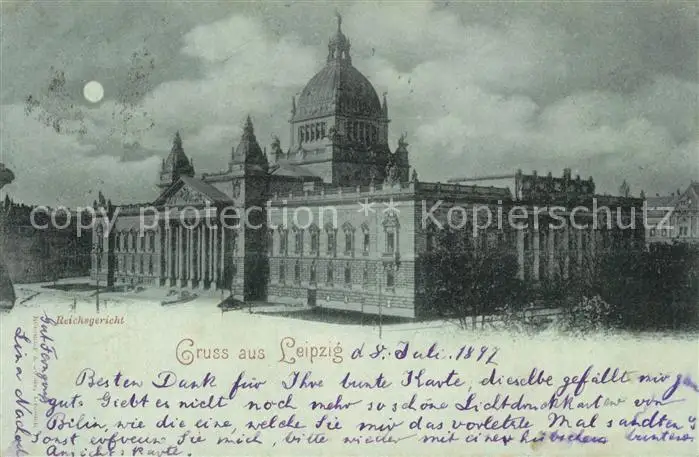 copy protection * Kopierschutz
Reichsgericht
Gruss aus Leipzig d 8. Juli. 1897
Besten Dank für Ihre bunte Karte, dieselbe gefällt mir
gut. Giebt es nicht noch mehr so schöne Lichtdruckkarten von
Bilin, wie die eine, welche Sie mir das vorletzte Mal sandten?
Sonst erfreuen Sie mich, bitte wieder mit einer hübschen bunten
Ansichtskarte.
Lina